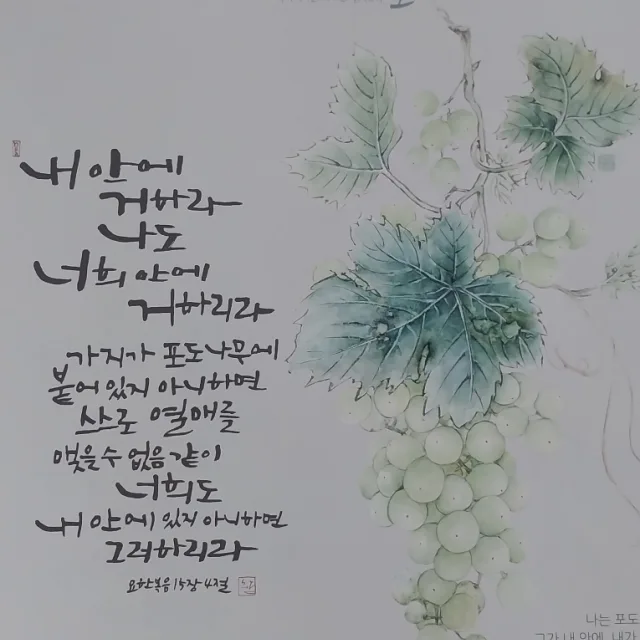 내 안에
거하라
나도
너희 안에
거하리라
가지가 포도나무에
붙어 있지 아니하면
스스로 열매를
맺을 수 없음 같이
너희도
내 안에 있지 아니하면
그러하리라
요한복음 15장 4절
나는 포도
그가 내 안에, 내가